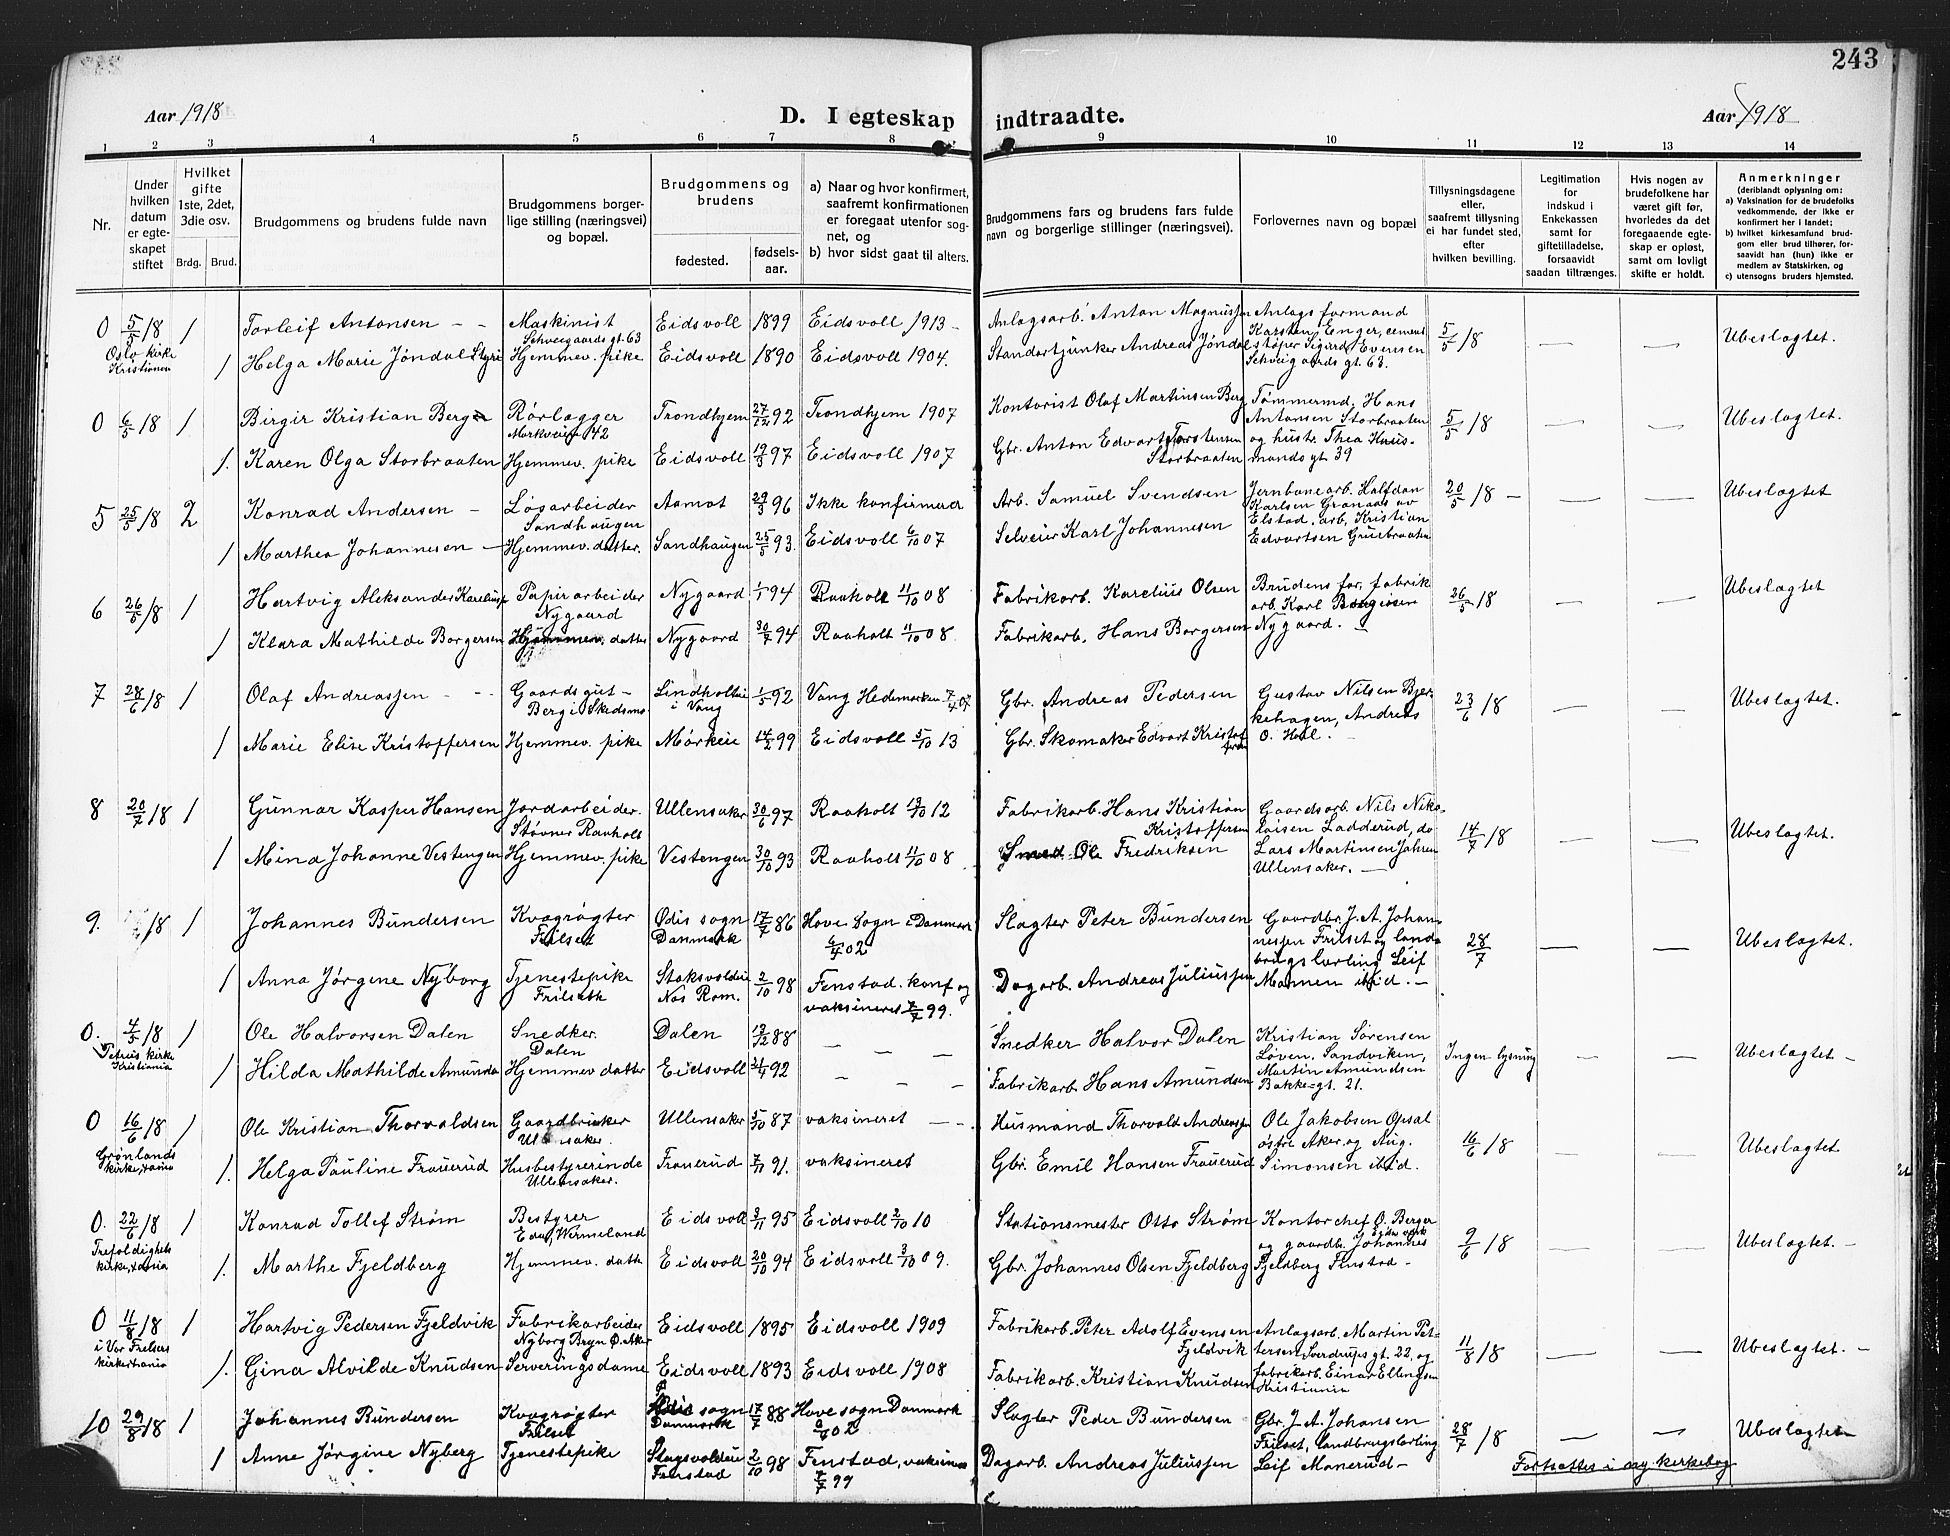 243
Aar 1918
D. I egteskap indtraadte.
Aar 1918
1 2 3 4 5 6 7 8 9 10 11 12 13 14
Nr.
Under hvilken datum er egteskapet stiftet
Hvilket gifte 1ste, 2det, 3die osv.
Brdg. Brud.
Brudgommens og brudens fulde navn
Brudgommens borgerlige stilling (næringsvei) og bopæl.
Brudgommens og brudens
fødested.
fødselsaar.
a) Naar og hvor konfirmert, saafremt konfirmationen er foregaat utenfor sognet, og
b) hvor sidst gaat til alters.
Brudgommens fars og brudens fars fulde navn og borgerlige stillinger (næringsvei).
Forlovernes navn og bopæl
Tillysningsdagene eller, saafremt tillysning ei har fundet sted, efter hvilken bevilling.
Legitimation for indskud i Enkekassen samt for giftetilladelse, forsaavidt saadan tiltrænges.
Hvis nogen av brudefolkene har været gift før, hvorledes da det foregaaende egteskap er opløst, samt om lovligt skifte er holdt.
Anmerkninger
(deriblandt oplysning om:
a) Vaksination for de brudefolks vedkommende, der ikke er konfirmert her i landet;
b) hvilket kirkesamfund brudgom eller brud tilhører, forsaavidt han (hun) ikke er medlem av Statskirken, og
c) utensogns bruders hjemsted.
0 5/5 18 1 Torleif Antonsen - - Maskinist Schweigaards gt. 63 Eidsvoll 1899 Eidsvoll 1913 - Anlagsarb. Anton Magnussen Anlagsformand Karsten Enger, cementstøper Sigard Evensen Schweigaards gt. 63. 5/5 18 — — Ubeslagtet.
Oslo kirke Kristiania
1 Helga Marie Jøndal Styri Hjemmev. pike Eidsvoll 1890 Eidsvoll 1904. Standartjunker Andreas Jøndal
0 6/5 18 1 Birgir Kristian Berg Rørlægger Markveien 42 Trondhjem 27/12 92 Trondhjem 1907 Kontorist Olaf Martinsen Berg Tømmermd. Hans Antonsen Storbraaten og hustr. Thea Knusmands gt. 39 5/5 18 — — Ubeslagtet.
1. Karen Olga Storbraaten Hjemmev. pike Eidsvoll 19/3 97 Eidsvoll 1907 Gbr. Anton Edvart Torstensen Storbraaten
5 25/5 18 2 Konrad Andersen - Løsarbeider Sandhaugen Aamot 29/3 96 Ikke konfirmerd Arb. Samuel Svendsen Jernbanearb. Halfdan Karlsen Granaas av Elstad, arb. Kristian Edvartsen Gruebraaten 20/5 18 - — — Ubeslagtet
1 Marthea Johannesen - Hjemmev. datter. Sandhaugen 25/5 93. Eidsvoll 6/10 07 Selveier Karl Johannesen
6 26/5 18 1 Hartvig Aleksander Kareliusen Papirarbeider Nygaard Nygaard 1/1 94 Raaholt 11/10 08 Fabrikarb. Karelius Olsen Brudens far, fabrikarb. Karl Borgersen Nygaard. - 26/5 18 — — Ubeslagtet
1 Klara Mathilde Borgersen Hjemmev. datter Nygaard 30/7 94 Raaholt 11/10 08. Fabrikarb. Hans Borgersen
7 28/6 18 1 Olaf Andreassen - - Gaardsgut - Berg i Skedsmo Lindholtei i Vang 1/5 92 Vang Hedemarken 7/4 07 Gbr. Andreas Pedersen Gustav Nilsen Bjerkehagen, Andreas O. Hol. - 23/6 18 — — Ubeslagtet.
1 Marie Elise Kristoffersen Hjemmev. pike Mørkeie 14/2 99 Eidsvoll 5/10 13 Gbr. Skomaker Edvart Kristoffersen
8 20/7 18 1 Gunnar Kasper Hansen Jordarbeider. Støvner Raaholt Ullensaker 30/6 97 Raaholt 13/10 12 Fabrikarb. Hans Kristian Kristoffersen Gaardsarb. Nils Nikolaisen Ladderud, do Lars Martinsen Jahren Ullensaker. - 14/7 18 — — Ubeslagtet.
1 Mina Johanne Vestengen Hjemmev. pike Vestengen 30/10 93 Raaholt 11/10 08 Smed Ole Fredriksen
9. 18 1 Johannes Bundersen Kvægrøgter Frilset Ødis sogn Danmark 17/7 86 Hove Sogn i Danmark 6/4 02 Slagter Peter Bundersen Gaardbr. J. A. Johannessen Frilset og landbrugslærling Leif Mannen ibid. - 28/7 — — Ubeslagtet.
1 Anna Jørgine Nyborg Tjenestepike Frilseth Staksvoldeie Næs Rom. 2/10 98 Fenstad. konf og vaksineret 7/7 99. Dagarb. Andreas Juliussen
0. 4/5 18 1 Ole Halvorsen Dalen Snedker. Dalen Dalen 19/12 88 — — — Snedker Halvor Dalen Kristian Sørensen Løven, Sandviken, Martin Amundsen Bakkegt. 21. Ingen lysning — — Ubeslagtet -
Petrus kirke Kristiania
1 Hilda Mathilde Amundsen Hjemmev datter Eidsvoll 21/4 92 — — — Fabrikarb Hans Amundsen
0 16/6 18 1 Ole Kristian Thorvaldsen Gaardbruker Ullensaker. Ullensaker 5/10 87 vaksineret - - Husmand Thorvald Andreassen Ole Jakobsen Opsal østre Aker og Aug. Simonsen ibid. 16/6 18 — — Ubeslagtet.
Grønlands kirke, Xania
1. Helga Pauline Frauerud Husbestyrerinde Ullensaker. Frauerud 7/11 91. vaksineret Gbr. Emil Hansen Frauerud
0. 22/6 18 1 Konrad Tollef Strøm Bestyrer Eda, Wermeland Eidsvoll 3/11 95 Eidsvoll 2/10 10 Stationsmester Otto Strøm Kontorchef O. Berger Eidsv. verk og gaardb. Johannes Fjeldberg Finstad - 9/6 18 — — Ubeslagtet. -
Trefoldighets kirke, Xania
1. Marthe Fjeldberg Hjemmev. datter Eidsvoll 20/10 94 Eidsvoll 3/10 09. Gbr. Johannes Olsen Fjeldberg
0 11/8 18 1 Hartvig Pedersen Fjeldvik Fabrikarbeider Nyborg Bryn Ø. Aker Eidsvoll 1895 Eidsvoll 1909 Fabrikarb. Peter Adolf Evensen Fjeldvik Anlagsarb. Martin Pettersen Sverdrups gt. 22, og fabrikarb. Einar Ellingsen Kristiania 11/8 18 — — Ubeslagtet. -
i Vor Frelsers kirke Xania
1. Gina Alvilde Knudsen Serveringsdame Eidsvoll 1893 Eidsvoll 1908 Fabrikarb. Kristian Knudsen
10 29/8 18 1 Johannes Bundersen Kvægrøgter Frilset Ødis sogn Danmark 17/7 88 Hove sogn Danmark 6/4 02 Slagter Peder Bundersen Gbr. J. A. Johansen Frilset, landbrugslærling Leif Manerud - 28/7 18 — — Ubeslagtet
1 Anne Jørgine Nyberg Tjenestepike Stagsvoldeie Fenstad 2/10 98 Fenstad, vaksineret 7/7 99 Dagarb. Andreas Juliussen
Fortsettes i ny kirkebog